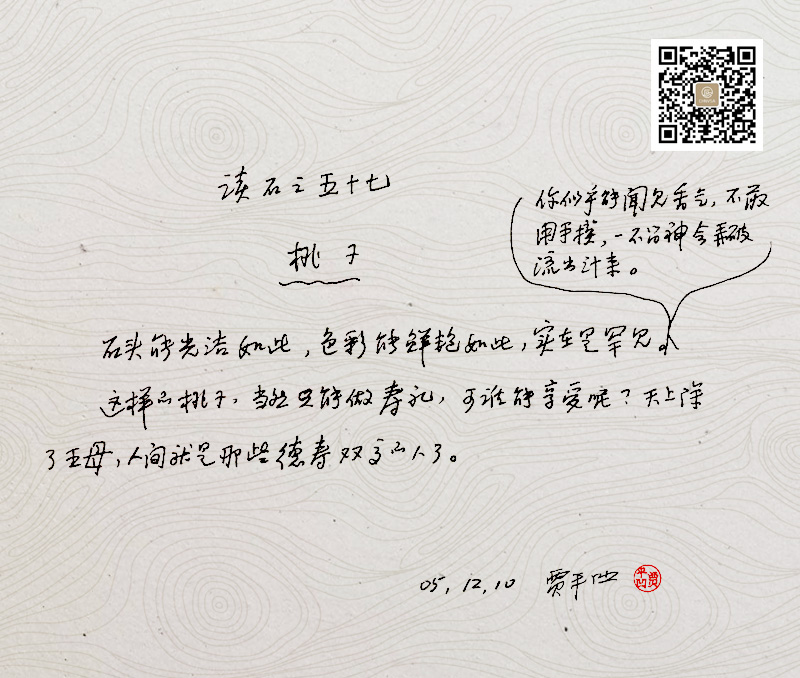 读石之五十七
桃子
你似乎能闻见香气，不敢
用手摸，一不留神会弄破
流出汁来。
石头能光洁如此，色彩能鲜艳如此，实在是罕见。
这样的桃子，当然只能做寿礼，可谁能享受呢？天上除
了王母，人间就是那些德寿双高的人了。
05，12，10 贾平凹
贾平凹